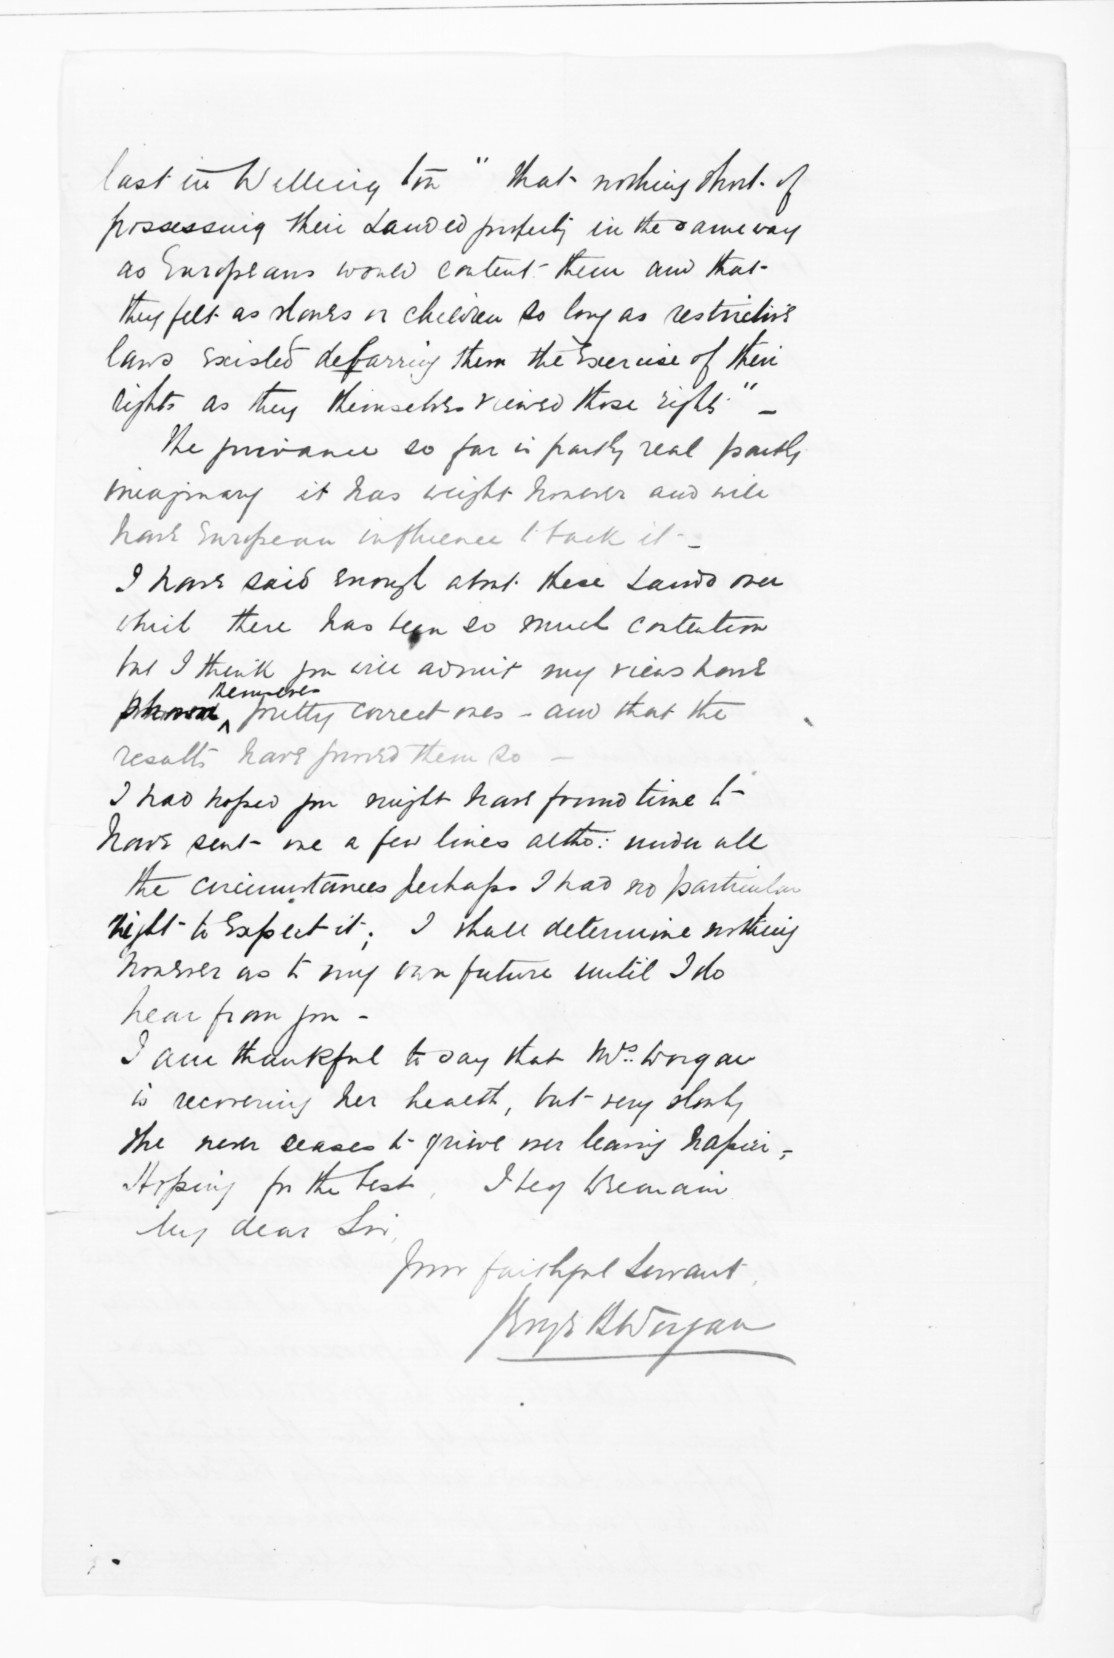 last in Wellington "that nothing short of
possessing their Landed property in the same way
as Europeans would content them and that
they felt as slaves or children so long as restrictive
laws existed debarring them the Exercise of their
rights as they themselves viewed those rights." —
The grievance so far is partly real partly
imaginary it has weight however and will
have European influence to back it —
I have said enough about these Lands over
which there has been so much contention
but I think you will admit my views have
shown themselves pretty correct ones — and that the
results have proved them so —
I had hoped you might have found time to
have sent me a few lines altho: under all
the circumstances perhaps I had no particular
right to Expect it; I shall determine nothing
however as to my own future until I do
hear from you —
I am thankful to say that Mrs. Worgan
is recovering her health, but very slowly
She never ceases to grieve over leaving Napier, —
Hoping for the best, I beg to remain
My dear Sir,
Your faithful Servant,
George B Worgan